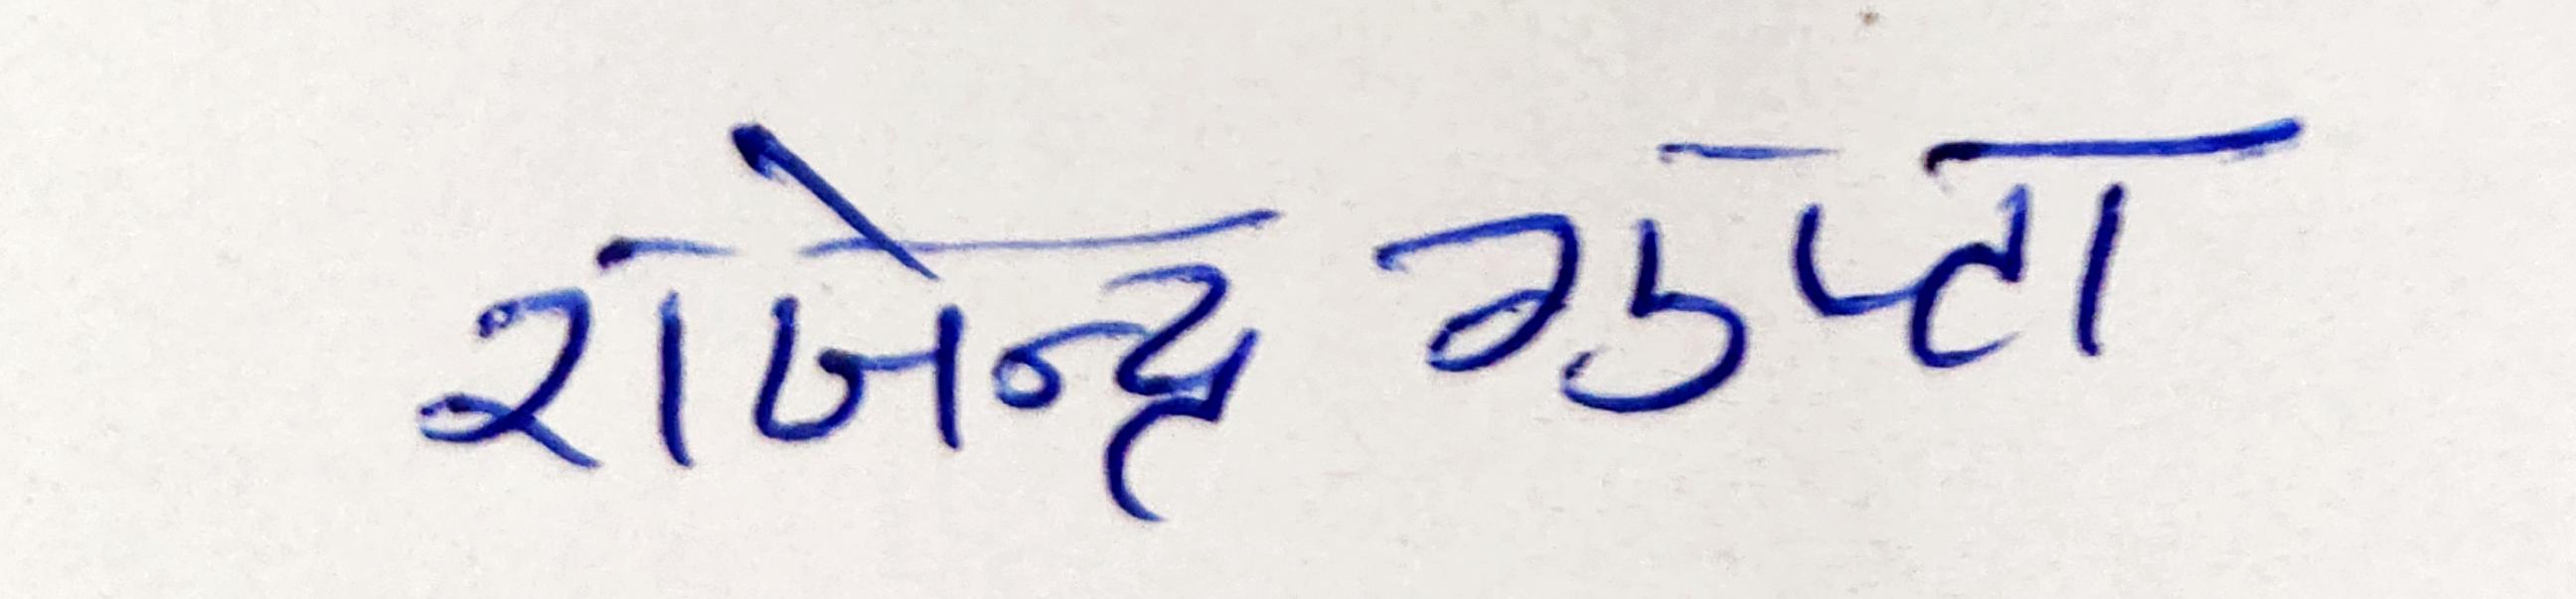 राजेन्द्र गुप्ता